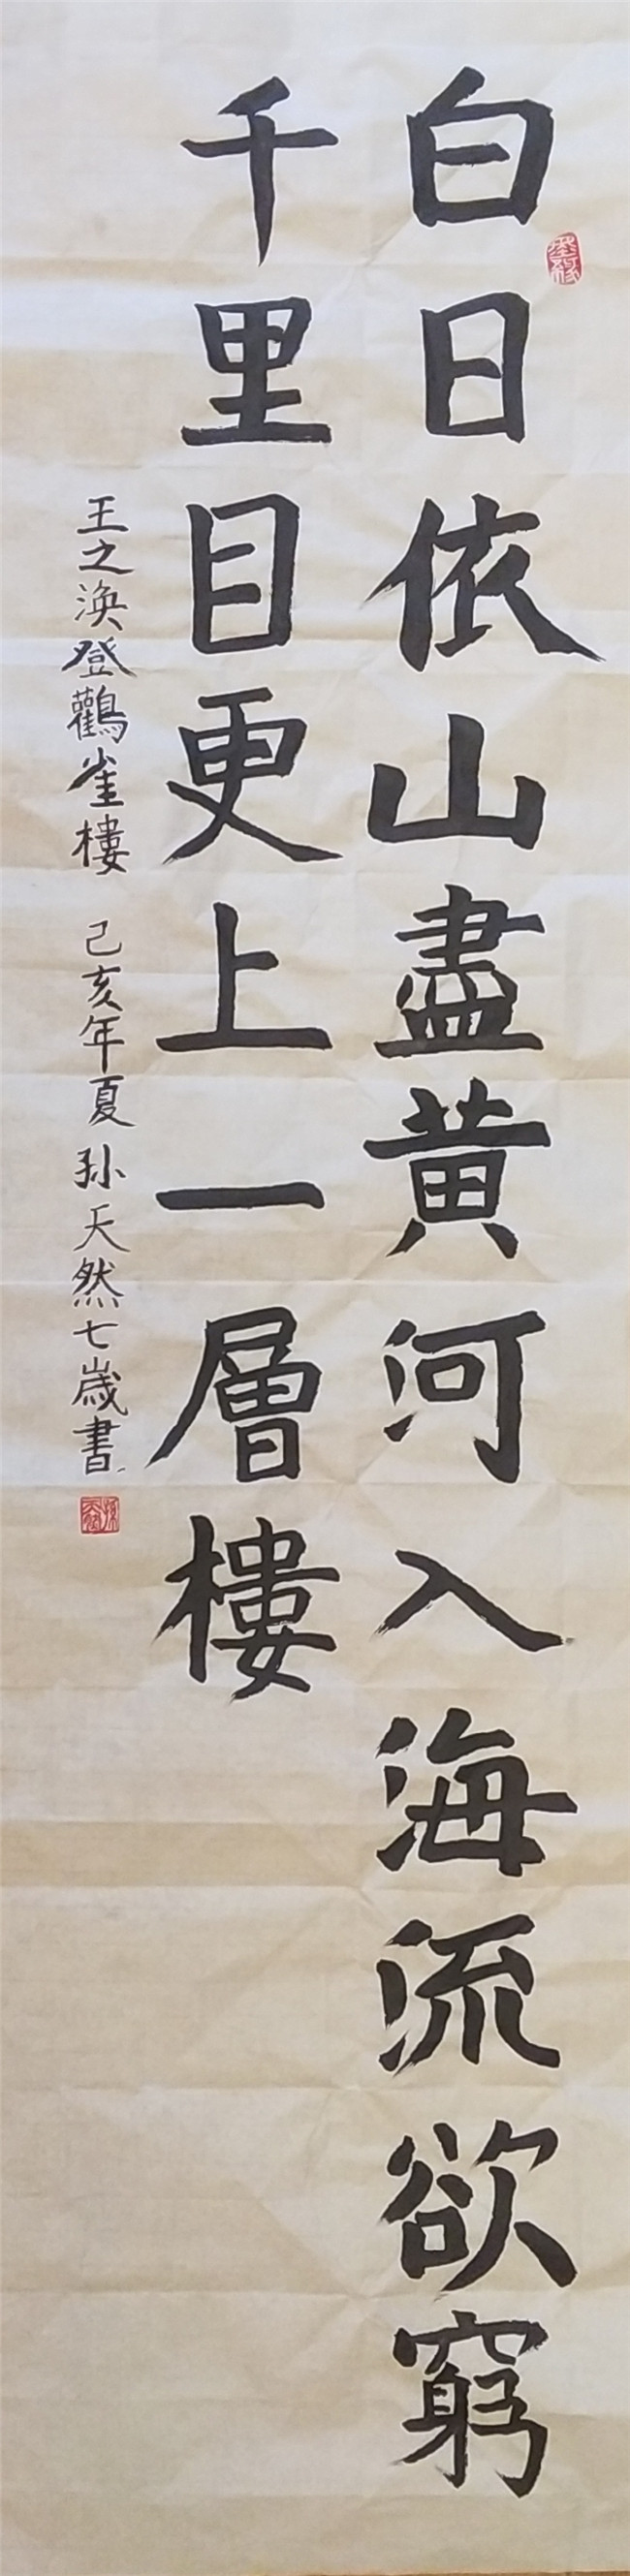 白日依山盡黄河入海流欲窮
千里目更上一層樓
王之渙登鸛雀樓 己亥年夏 孫天然七歲書